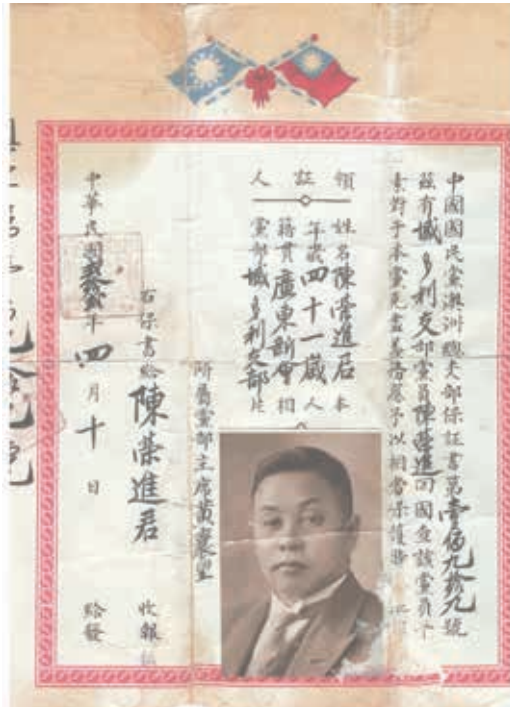 中國國民黨澳洲總支部保証書第壹佰九拾九號
茲有域多利支部黨員陳榮進回國查該黨員平
素對于本黨克盡義務應予以相當保護
領証人
姓名陳榮進君
年歲四十一歲
籍貫廣東新會
黨部域多利支部
本人相片
所屬黨部主席黃襄望
右保書給陳榮進君收報
中華民國年四月十日給發